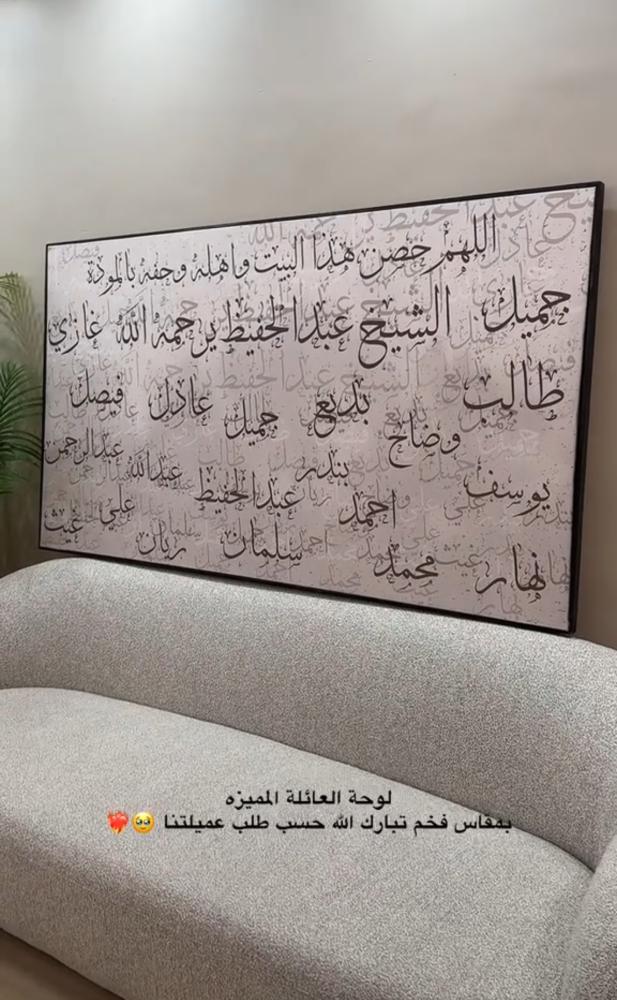 اللهم حصن هذا البيت واهله وحفه بالمودة
جميل الشيخ عبدالحفيظ يرحمه الله غازي
طالب بديع جميل عادل فيصل
وضاح عبدالرحمن
يوسف بندر عبدالله
احمد عبدالحفيظ علي غيث
نهار محمد سلمان ريان
لوحة العائلة المميزه
بمقاس فخم تبارك الله حسب طلب عميلتنا 🥹❤️‍🔥